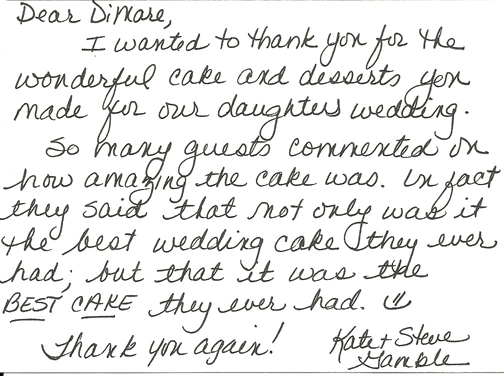 Dear DiMare,
I wanted to thank you for the
wonderful cake and desserts you
made for our daughters wedding.
So many guests commented on
how amazing the cake was. In fact
they said that not only was it
the best wedding cake they ever
had; but that it was the
BEST CAKE they ever had.
Thank you again! Kate + Steve
Gamble